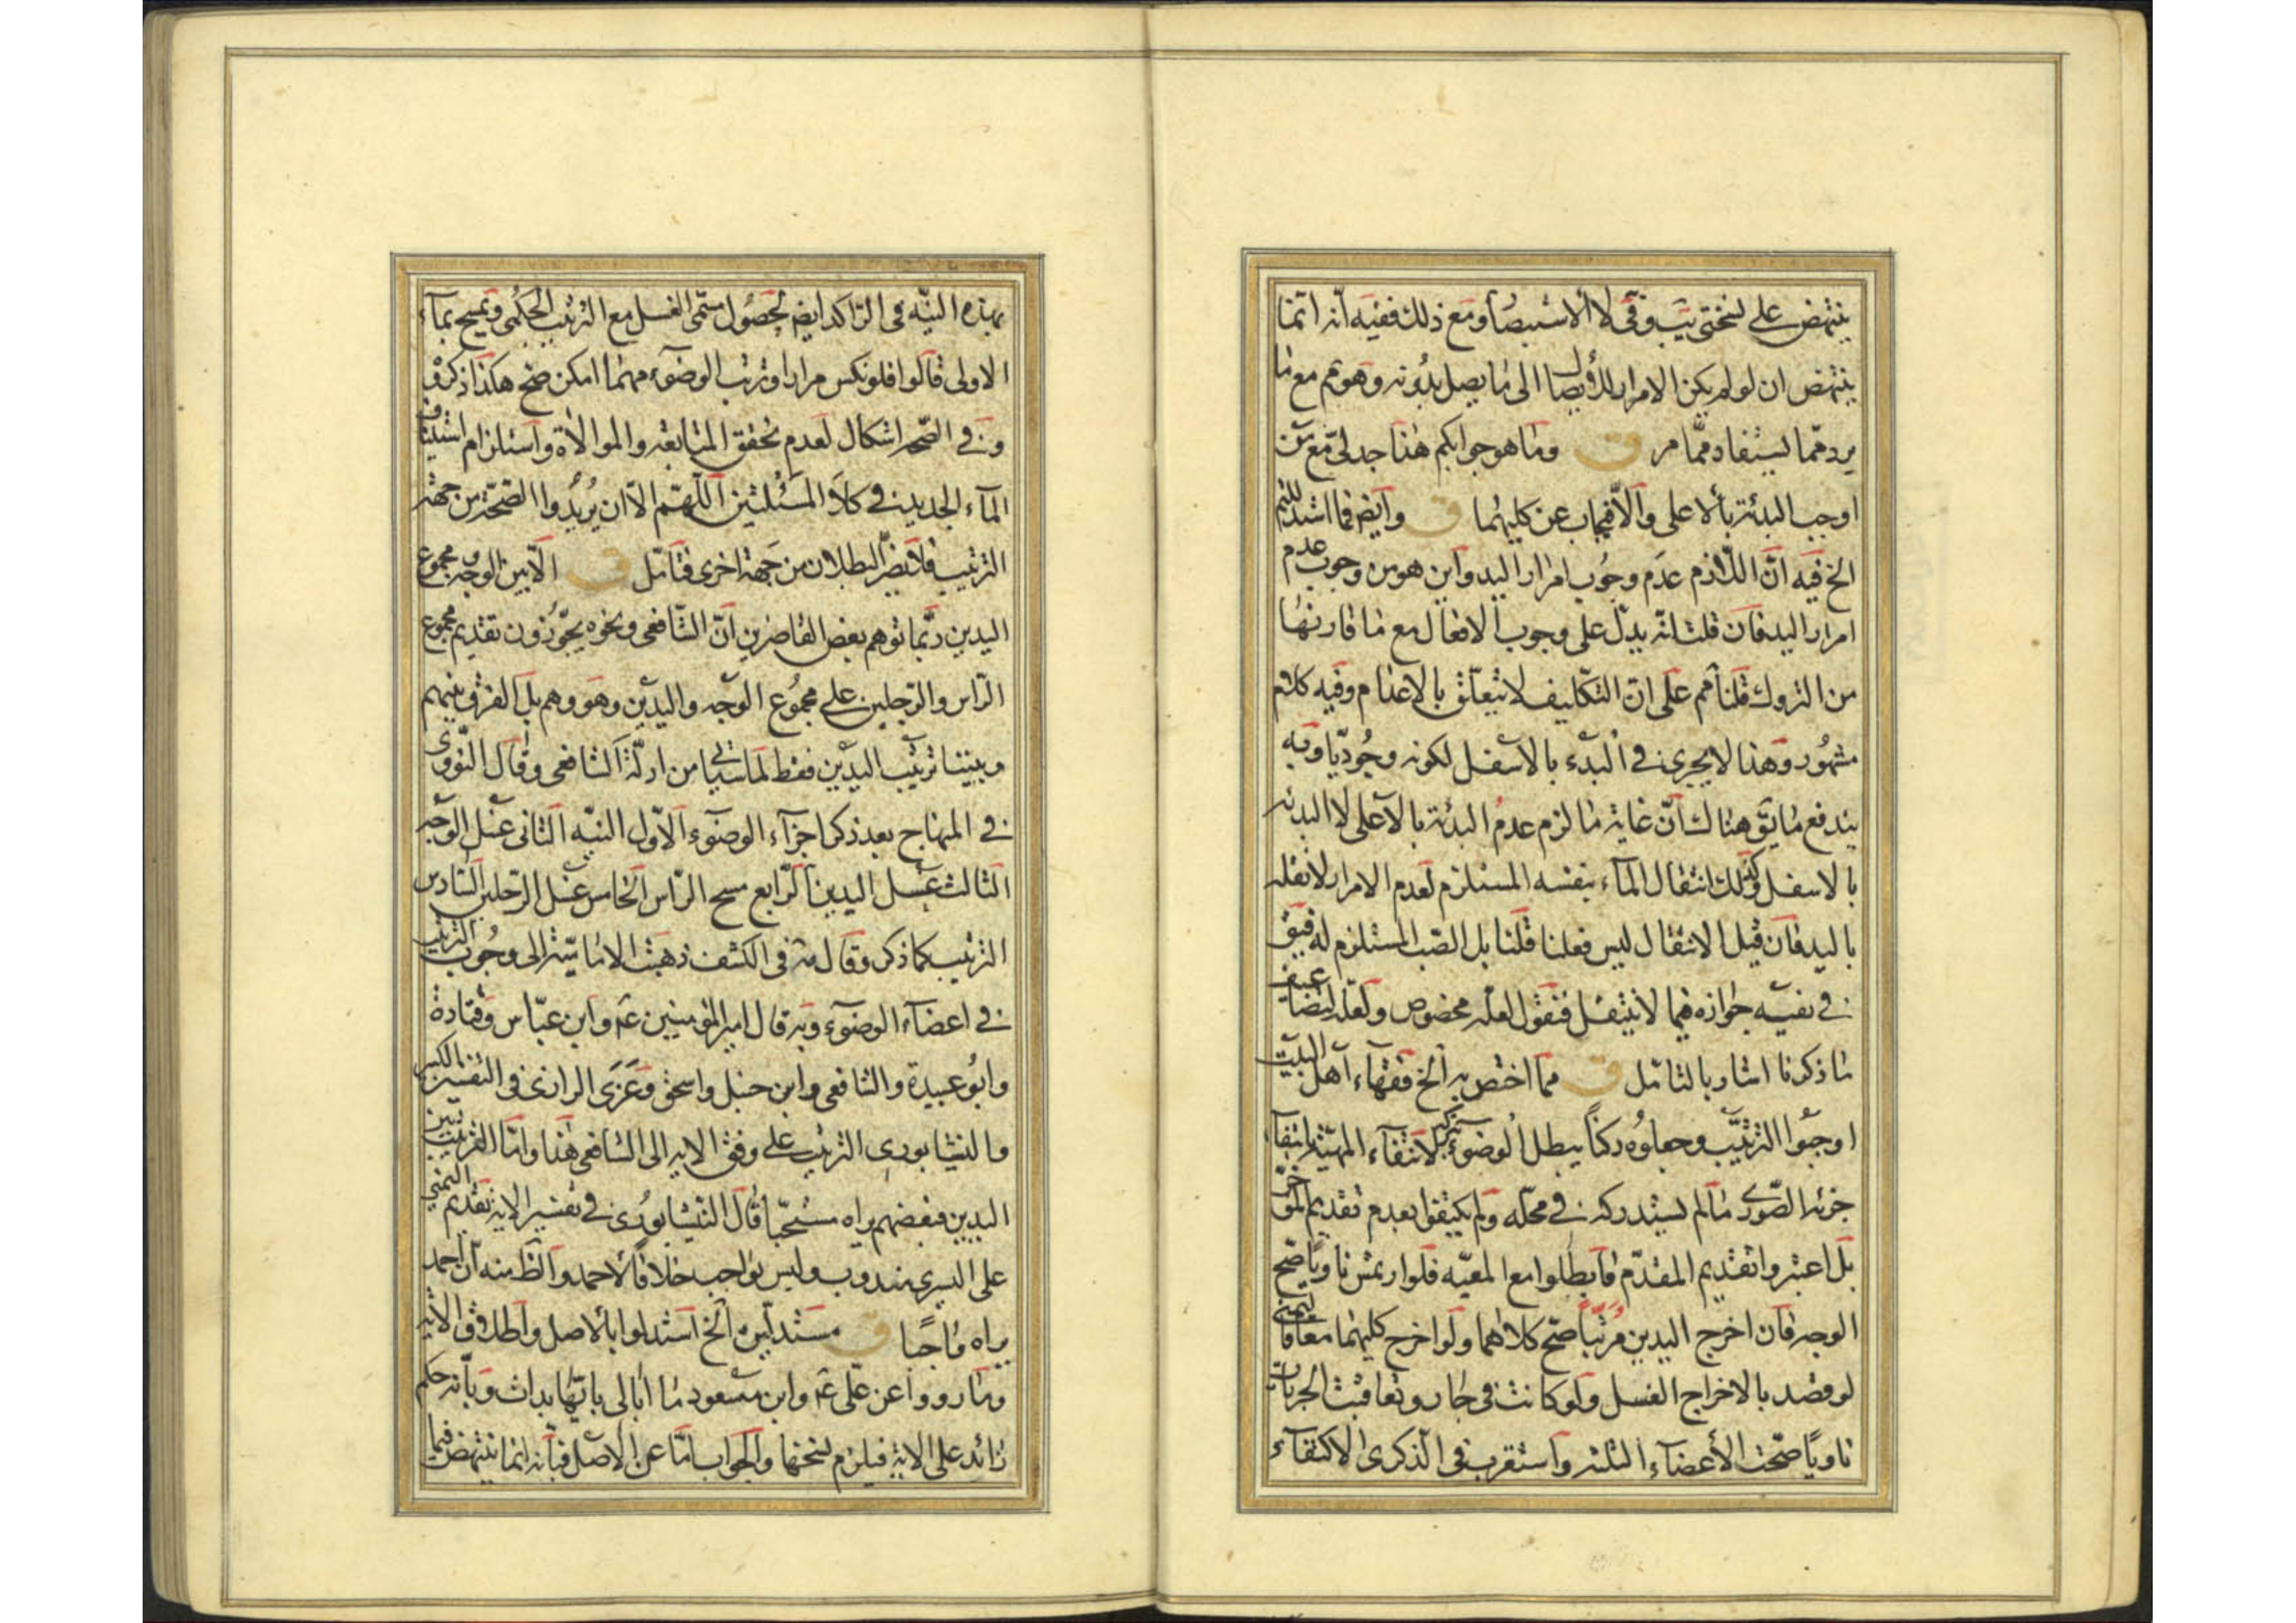 ينتهض على نسختى يب وقى لا الاستبصار ومع ذلك ففيه انه انما
ينتهض ان لو لم يكن الامرار الى ما يصل بدونه وهو مم مع ما
يرد مما يستفاد مما مر ق وما هو جوابكم هذا جدلى مع من
اوجب البدئة بالاعلى والا فيجاب عن كليهما ق وايض فما اشتد
الخ فيه انّ اللازم عدم وجوب امرار اليد واين هو من وجوب عدم
امرار اليد فان قلت انّه يدلّ على وجوب الافعال مع ما قارنها
من التروك قلنا مم على ان التكاليف لا تتعلّق بالاعدام وفيه كلام
مشهور وهذا لا يجرى فى البدء بالاسفل لكونه وجوديّا وبه
يندفع ما يق هناك انّ غاية ما لزم عدم البدئة بالاعلى لا البدئة
بالاسفل وكذلك انتقال المآء بنفسه المستلزم لعدم الامرار لا نقله
باليد فان قيل الانتقال ليس فعلنا قلنا بل الصّب المستلزم له فيبقى
فى نفسه جوازه فيما لا ينتقل فنقول لعلّه مخصوص ولعلّه لضعف
ما ذكرنا اشار بالتامّل ق مما اختص به الخ فقهآء اهل البيت
اوجبوا الترتيب وجعلوه ركنًا يبطل الوضوء بتركه لانتفآء المهيّة بانتفآء
جزئه الصّورى ما لم يستدركه فى محلّه ولم يكتفوا بعدم تقديم المؤخّر
بل اعتبروا تقديم المقدّم فابطلوا مع المعيّه فلو ارتمس ناويًا صحّ
الوجه فان اخرج اليدين مرتّبًا صحّ كلاهما ولو اخرج كليهما معا فاليمنى
لو قصد بالاخراج الغسل ولو كانت فى جار وتعاقبت الجريات
ناويًا صحّت الأعضآء الثلثة واستقرب فى الذكرى الاكتفآء
بهذه النيّة فى الرّاكد ايض لحصول مسمّى الغسل مع الترتيب الحكمى ويمسح بمآء
الاولى قالوا فلو نكس مرارا وترتب الوضوء مهما امكن صح هكذا ذكروا
وفى الصّحة اشكال لعدم تحقق المتابعة والموالاة واستلزام استيناف
المآء الجديد فى كلا المسئلتين اللّهمّ الا ان يريدوا الصّحّة من جهة
الترتيب فلا يضرّ البطلان من جهة اخرى فتامّل ق الا بين الوجه ومجموع
اليدين ربّما توهم بعض القاصرين انّ الشّافعى ونحوه يجوّزون تقديم مجموع
الرّاس والرّجلين على مجموع الوجه واليدين وهو وهم بل الفرق بينهم
وبيننا ترتيب اليدين فقط لما سياتى من ادلّة الشافعى وقال النّووى
فى المنهاج بعد ذكر اجزآء الوضوء الاوّل النيّه الثانى غسل الوجه
الثالث غسل اليدين الرّابع مسح الرّاس الخامس غسل الرّجلين السّادس
الترتيب كما ذكر وقال فى الكشف ذهبت الاماميّة الى وجوب الترتيب
فى اعضآء الوضوء وبه قال امير المؤمنين عم وابن عبّاس وقتادة
وابو عبيدة والشافعى وابن حنبل واسحق وعزى الرازى فى التفسير الكبير
والنيشابورى الترتيب على وفق الايه الى الشافعى هذا وامّا الترتيب بين
اليدين فبعضهم يراه مستحبّا قال النيشابورى فى تفسير الاية تقديم اليمنى
على اليسرى مندوب وليس بواجب خلافًا لاحمد والظ منه ان احمد
يراه واجبًا ق مستدلّين الخ استدلوا بالاصل واطلاق الآية
وما رووا عن علّى عم وابن مسعود ما ابالى بايّها بدات وبانه حكم
زائد على الاية فيلزم نسخها والجواب امّا عن الاصل فبانه انما ينتهض فيما